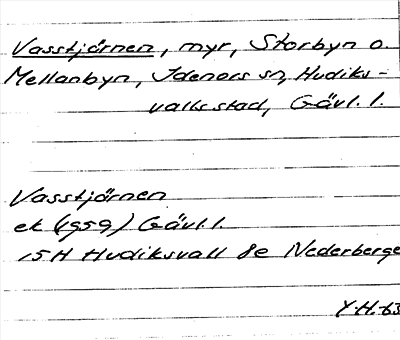 Vasstjärnen, myr, Storbyn o.
Mellanbyn, Idenors sn, Hudiks-
valls stad, Gävl. l.
Vasstjärnen
ek (1959) Gävl. l.
15H Hudiksvall 8e Nederberge
Y.H.-63